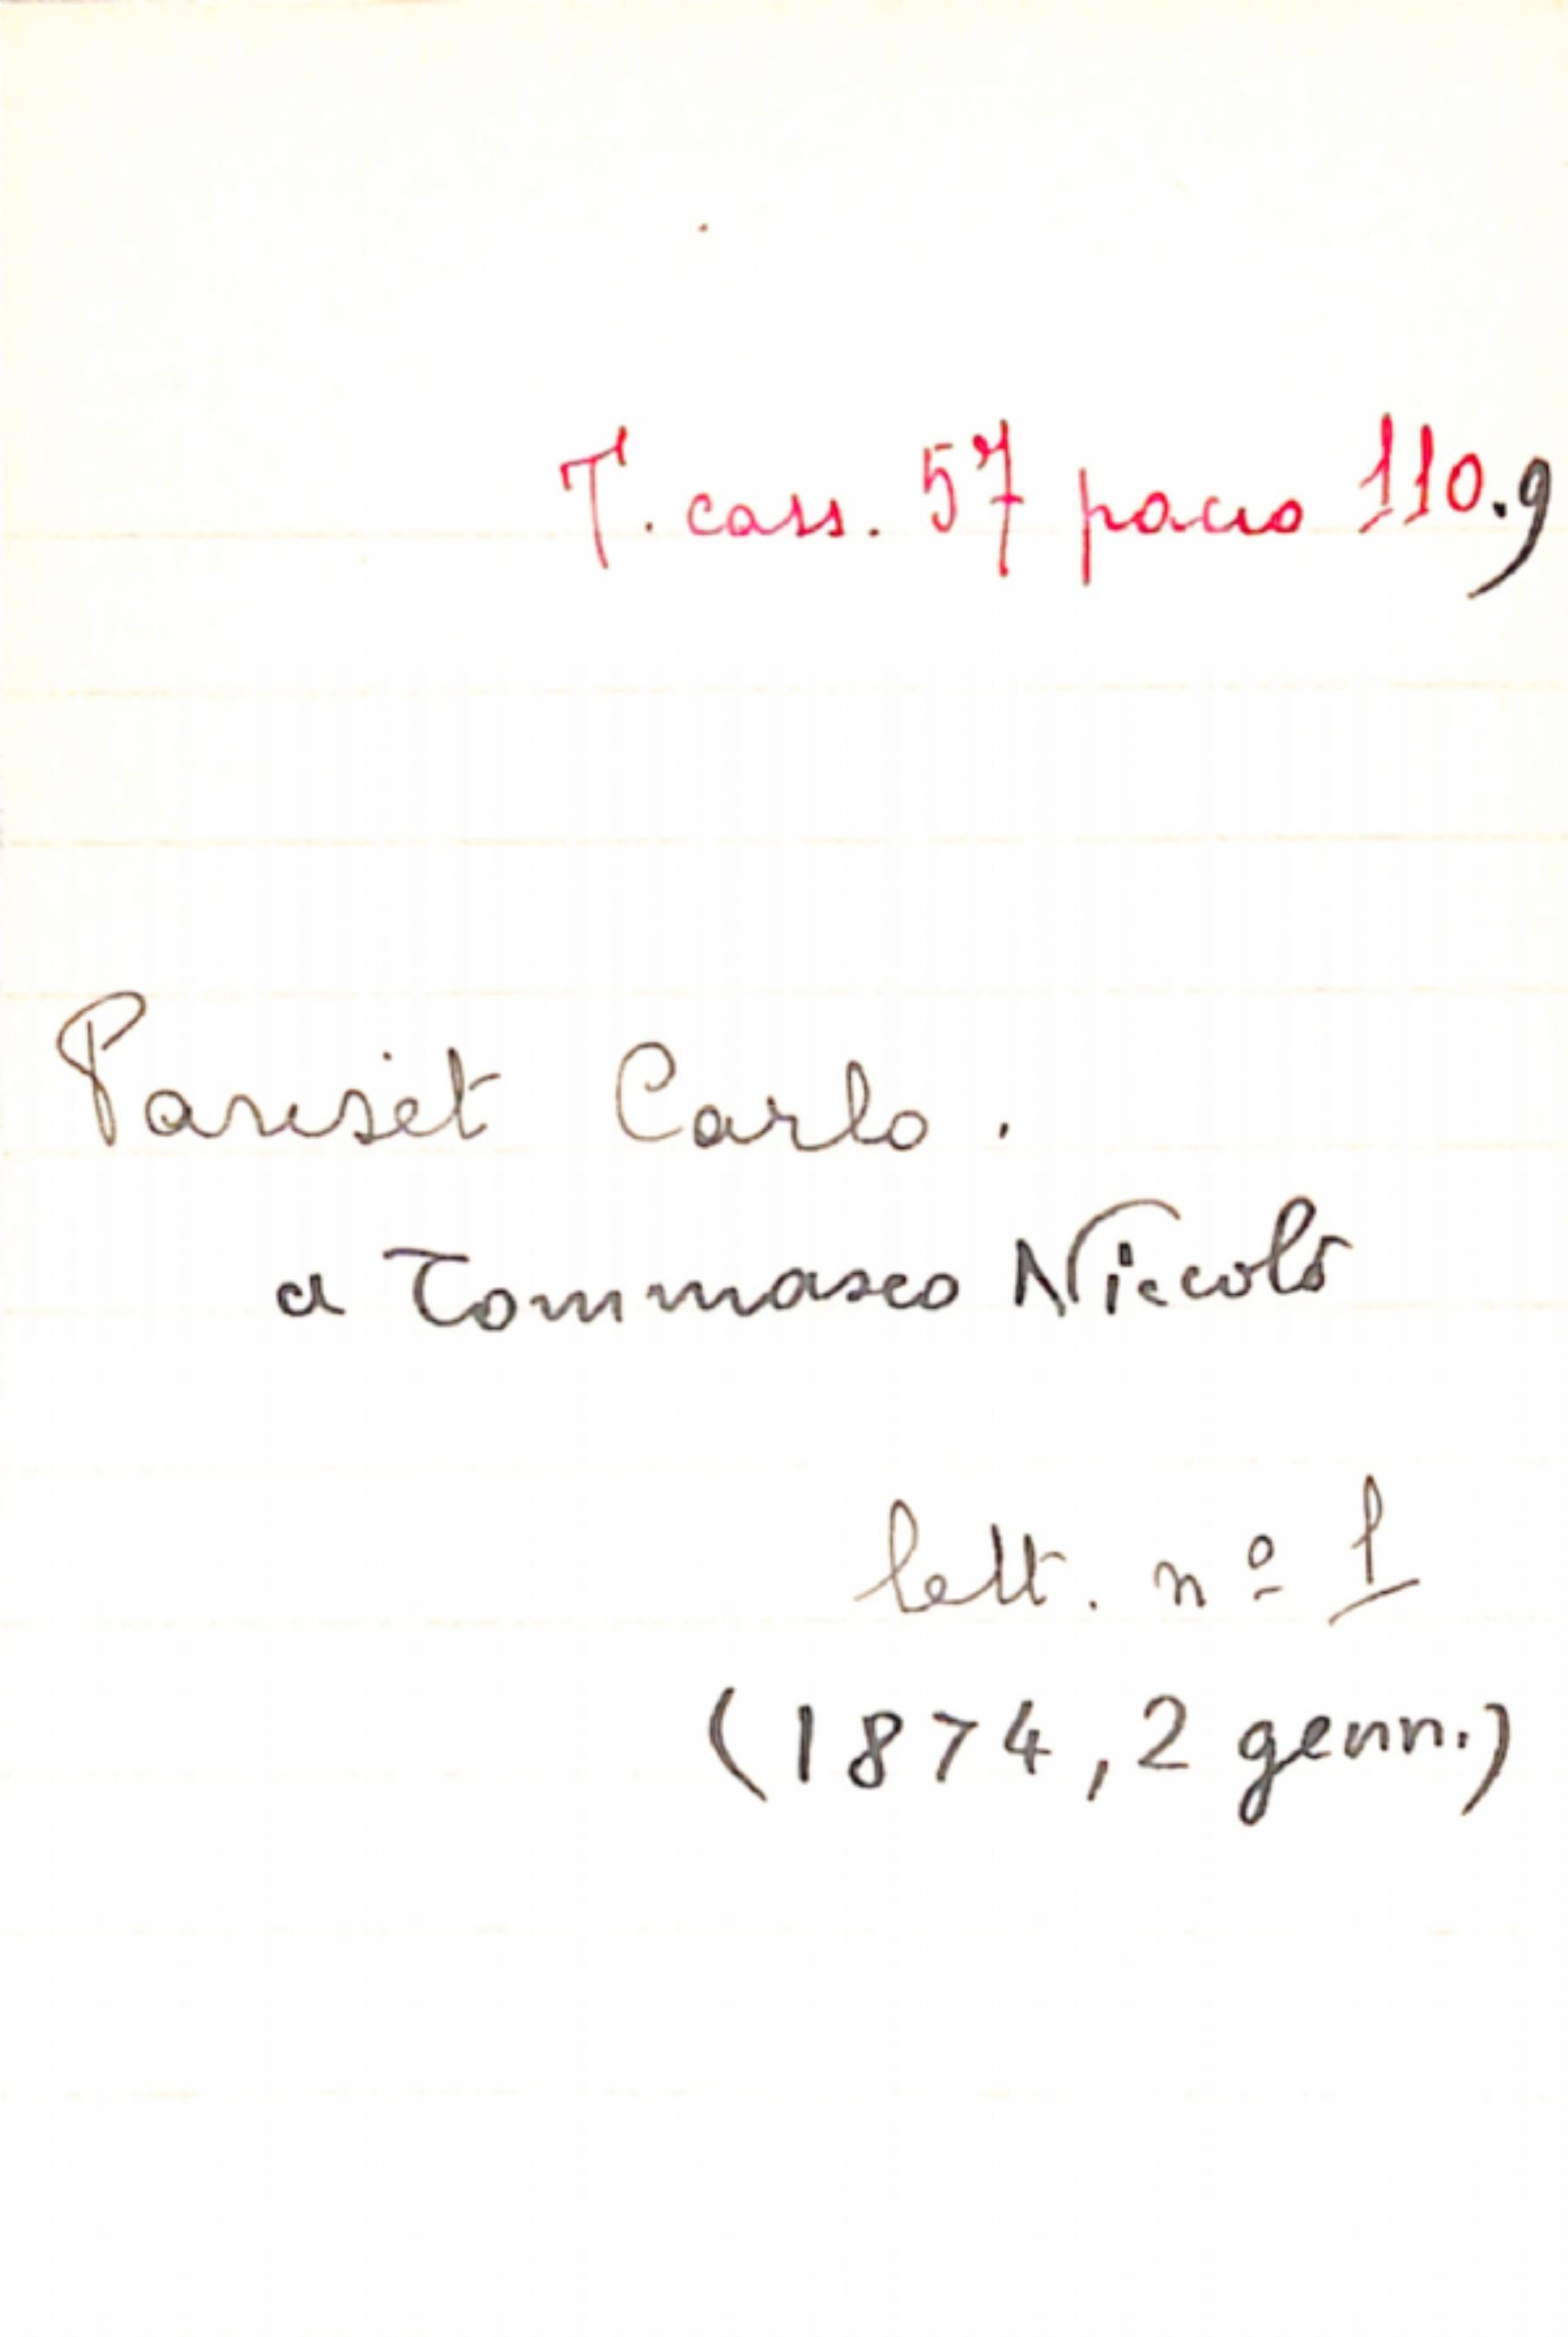 T. cass. 57 pacco 110.9
Pariset Carlo.
a Tommaseo Niccolò
lett. nº 1
(1874, 2 genn.)